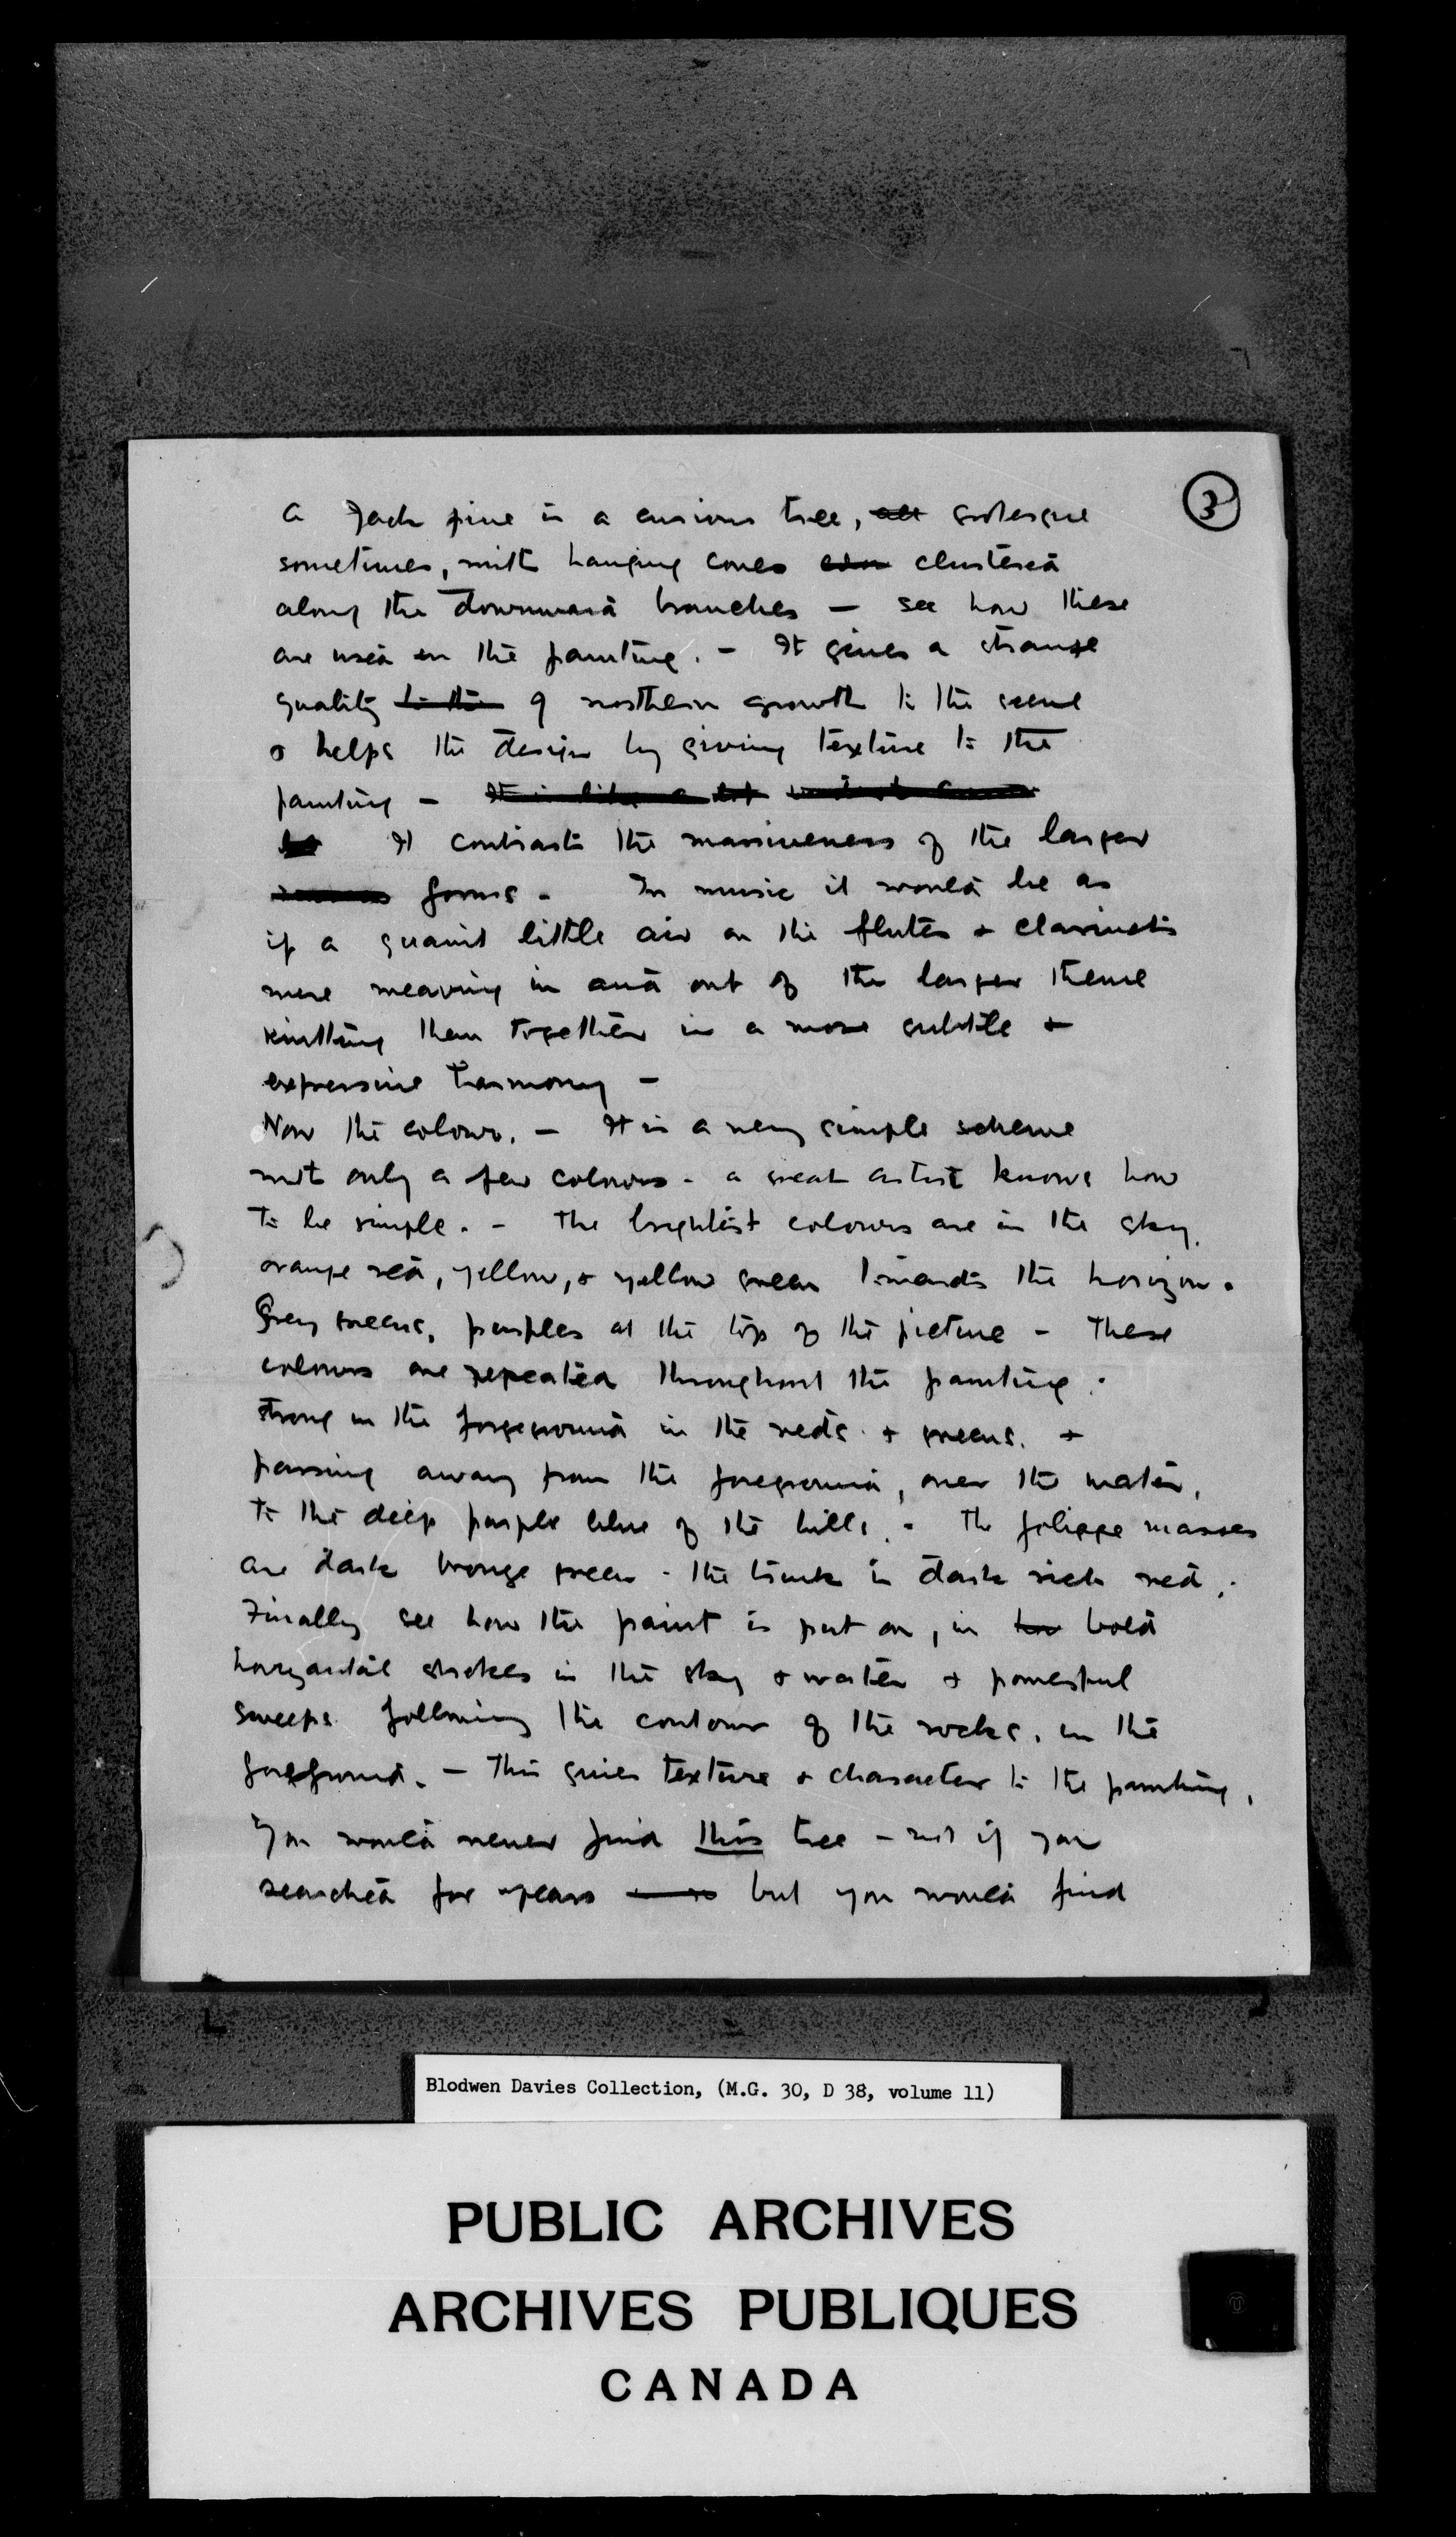 3
A Jack pine is a curious tree, grotesque
sometimes, with hanging cones clustered
along the downward branches — see how these
are used in the painting. — It gives a strange
quality to the of northern growth to the scene
& helps the design by giving texture to the
painting —
It contrasts the massiveness of the larger
forms - In music it would be as
if a quaint little air on the flutes & clarinets
were weaving in and out of the larger theme
knitting them together in a more subtle &
expressive harmony —
Now the colour. — It is a very simple scheme
with only a few colours - a great artist knows how
to be simple. - The brightest colours are in the sky.
orange red, yellow, & yellow green towards the horizon.
Grey greens, purples at the top of the picture - These
colours are repeated throughout the painting.
strong in the foreground in the reds & greens. &
passing away from the foreground, over the water,
to the deep purple blue of the hills. - The foliage masses
are dark bronze green - the trunk is dark rich red.
Finally see how the paint is put on, in bold
horizontal strokes in the sky & water & powerful
sweeps following the contour of the rocks, in the
foreground. — This gives texture & character to the painting.
You would never find this tree — not if you
searched for years but you would find
Blodwen Davies Collection, (M.G. 30, D 38, volume 11)
PUBLIC ARCHIVES
ARCHIVES PUBLIQUES
CANADA